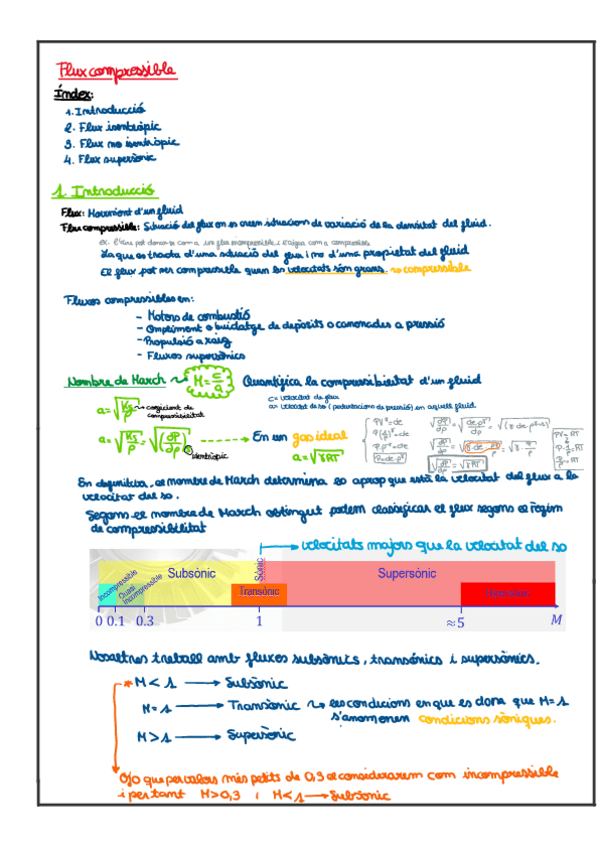 Flux compressible
Índex:
1. Introducció
2. Flux isentròpic
3. Flux no isentròpic
4. Flux supersònic
1. Introducció
Flux: Moviment d'un fluid
Flux compressible: Situació del flux on es creen situacions de variació de la densitat del fluid.
ex. L'aire pot donar-se com a un flux incompressible i l'aigua com a compressible
Ja que es tracta d'una situació del flux i no d'una propietat del fluid
El flux pot ser compressible quan les velocitats són grans. → compressible
Fluxos compressibles en:
- Motors de combustió
- Ompliment o buidatge de depòsits o canonades a pressió
- Propulsió a raig
- Fluxos supersònics
Nombre de March → M = c/a Quantifica la compressibilitat d'un fluid
c = velocitat de flux
a = velocitat de so (pertorbacions de pressió) en aquell fluid.
a = √(Ks/ρ) → coeficient de compressibilitat
a = √(Ks/ρ) = √(∂P/∂ρ)s isentròpic → En un gas ideal
a = √(γRT)
En definitiva, el nombre de March determina so aprop que està la velocitat del flux a la
velocitat del so.
Segons el nombre de March obtingut podem classificar el flux segons el règim
de compressibilitat
velocitats majors que la velocitat del so
Incompressible
Quasi incompressible
Subsònic
Sònic
Transònic
Supersònic
Hipersònic
0 0.1 0.3 1 ≈5 M
Nosaltres treball amb fluxos subsònics, transònics i supersònics.
* M < 1 → Subsònic
M = 1 → Transònic → les condicions en que es dona que M=1
s'anomenen condicions sòniques.
M > 1 → Supersònic
Ojo que per valors més petits de 0,3 el considerarem com incompressible
i per tant M>0,3 i M<1 → Subsònic